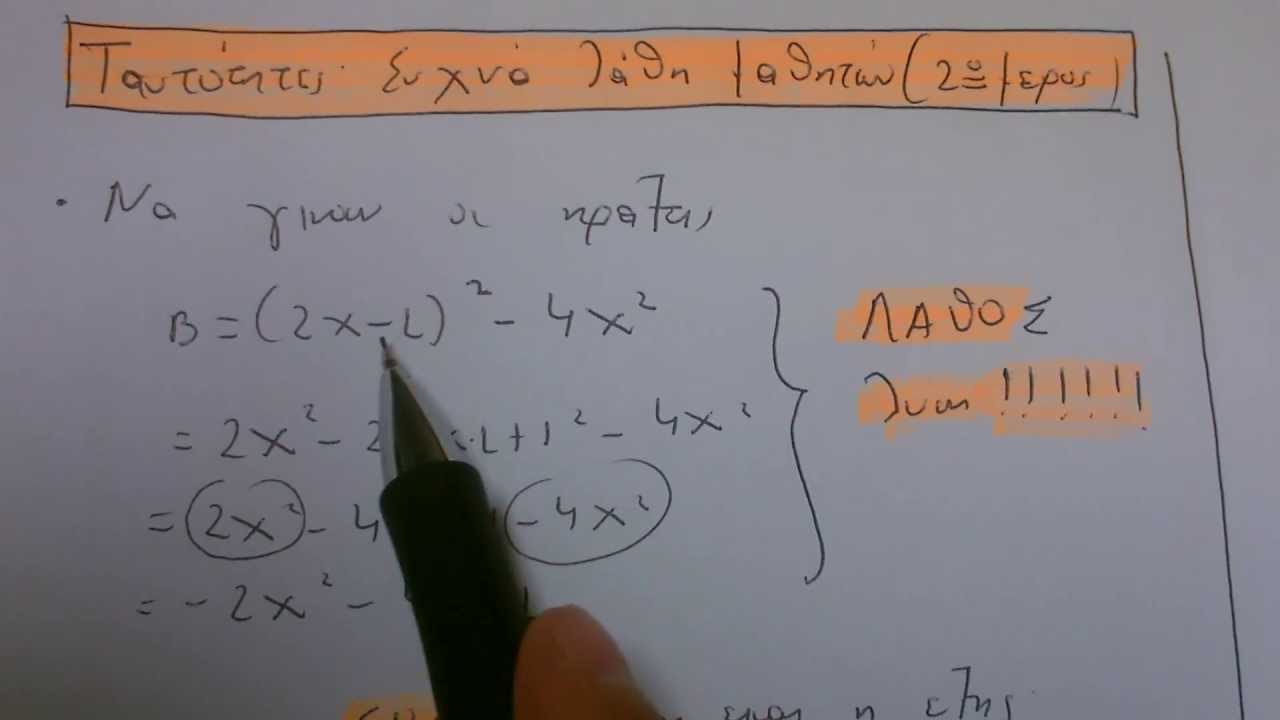 Ταυτότητες Συχνά λάθη μαθητών (2ο μέρος)
· Να γίνουν οι πράξεις
B = (2x-1)² - 4x²
= 2x² - 2 x·1+1² - 4x²
= 2x² - 4 - 4x²
= - 2x² -
ΛΑθΟΣ
λύση !!!!!!
η εξής